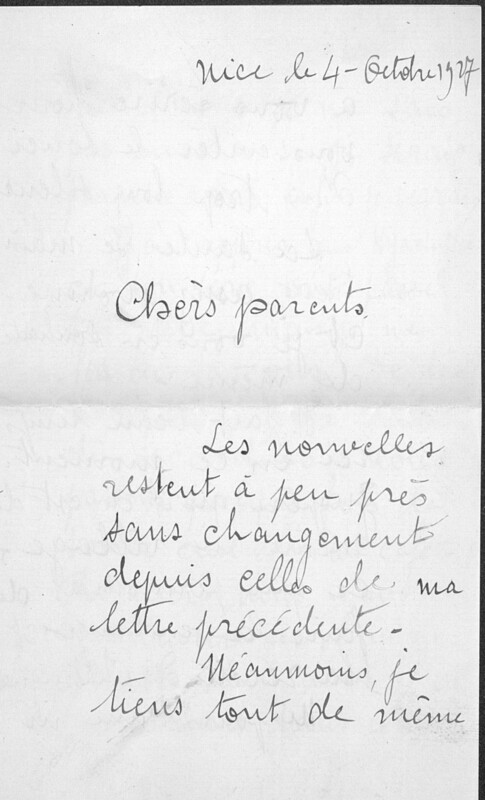 Nice le 4 - Octobre 1927
Chèrs parents.
Les nouvelles
restent à peu près
sans changement
depuis celles de ma
lettre précédente -
Néanmoins, je
tiens tout de même